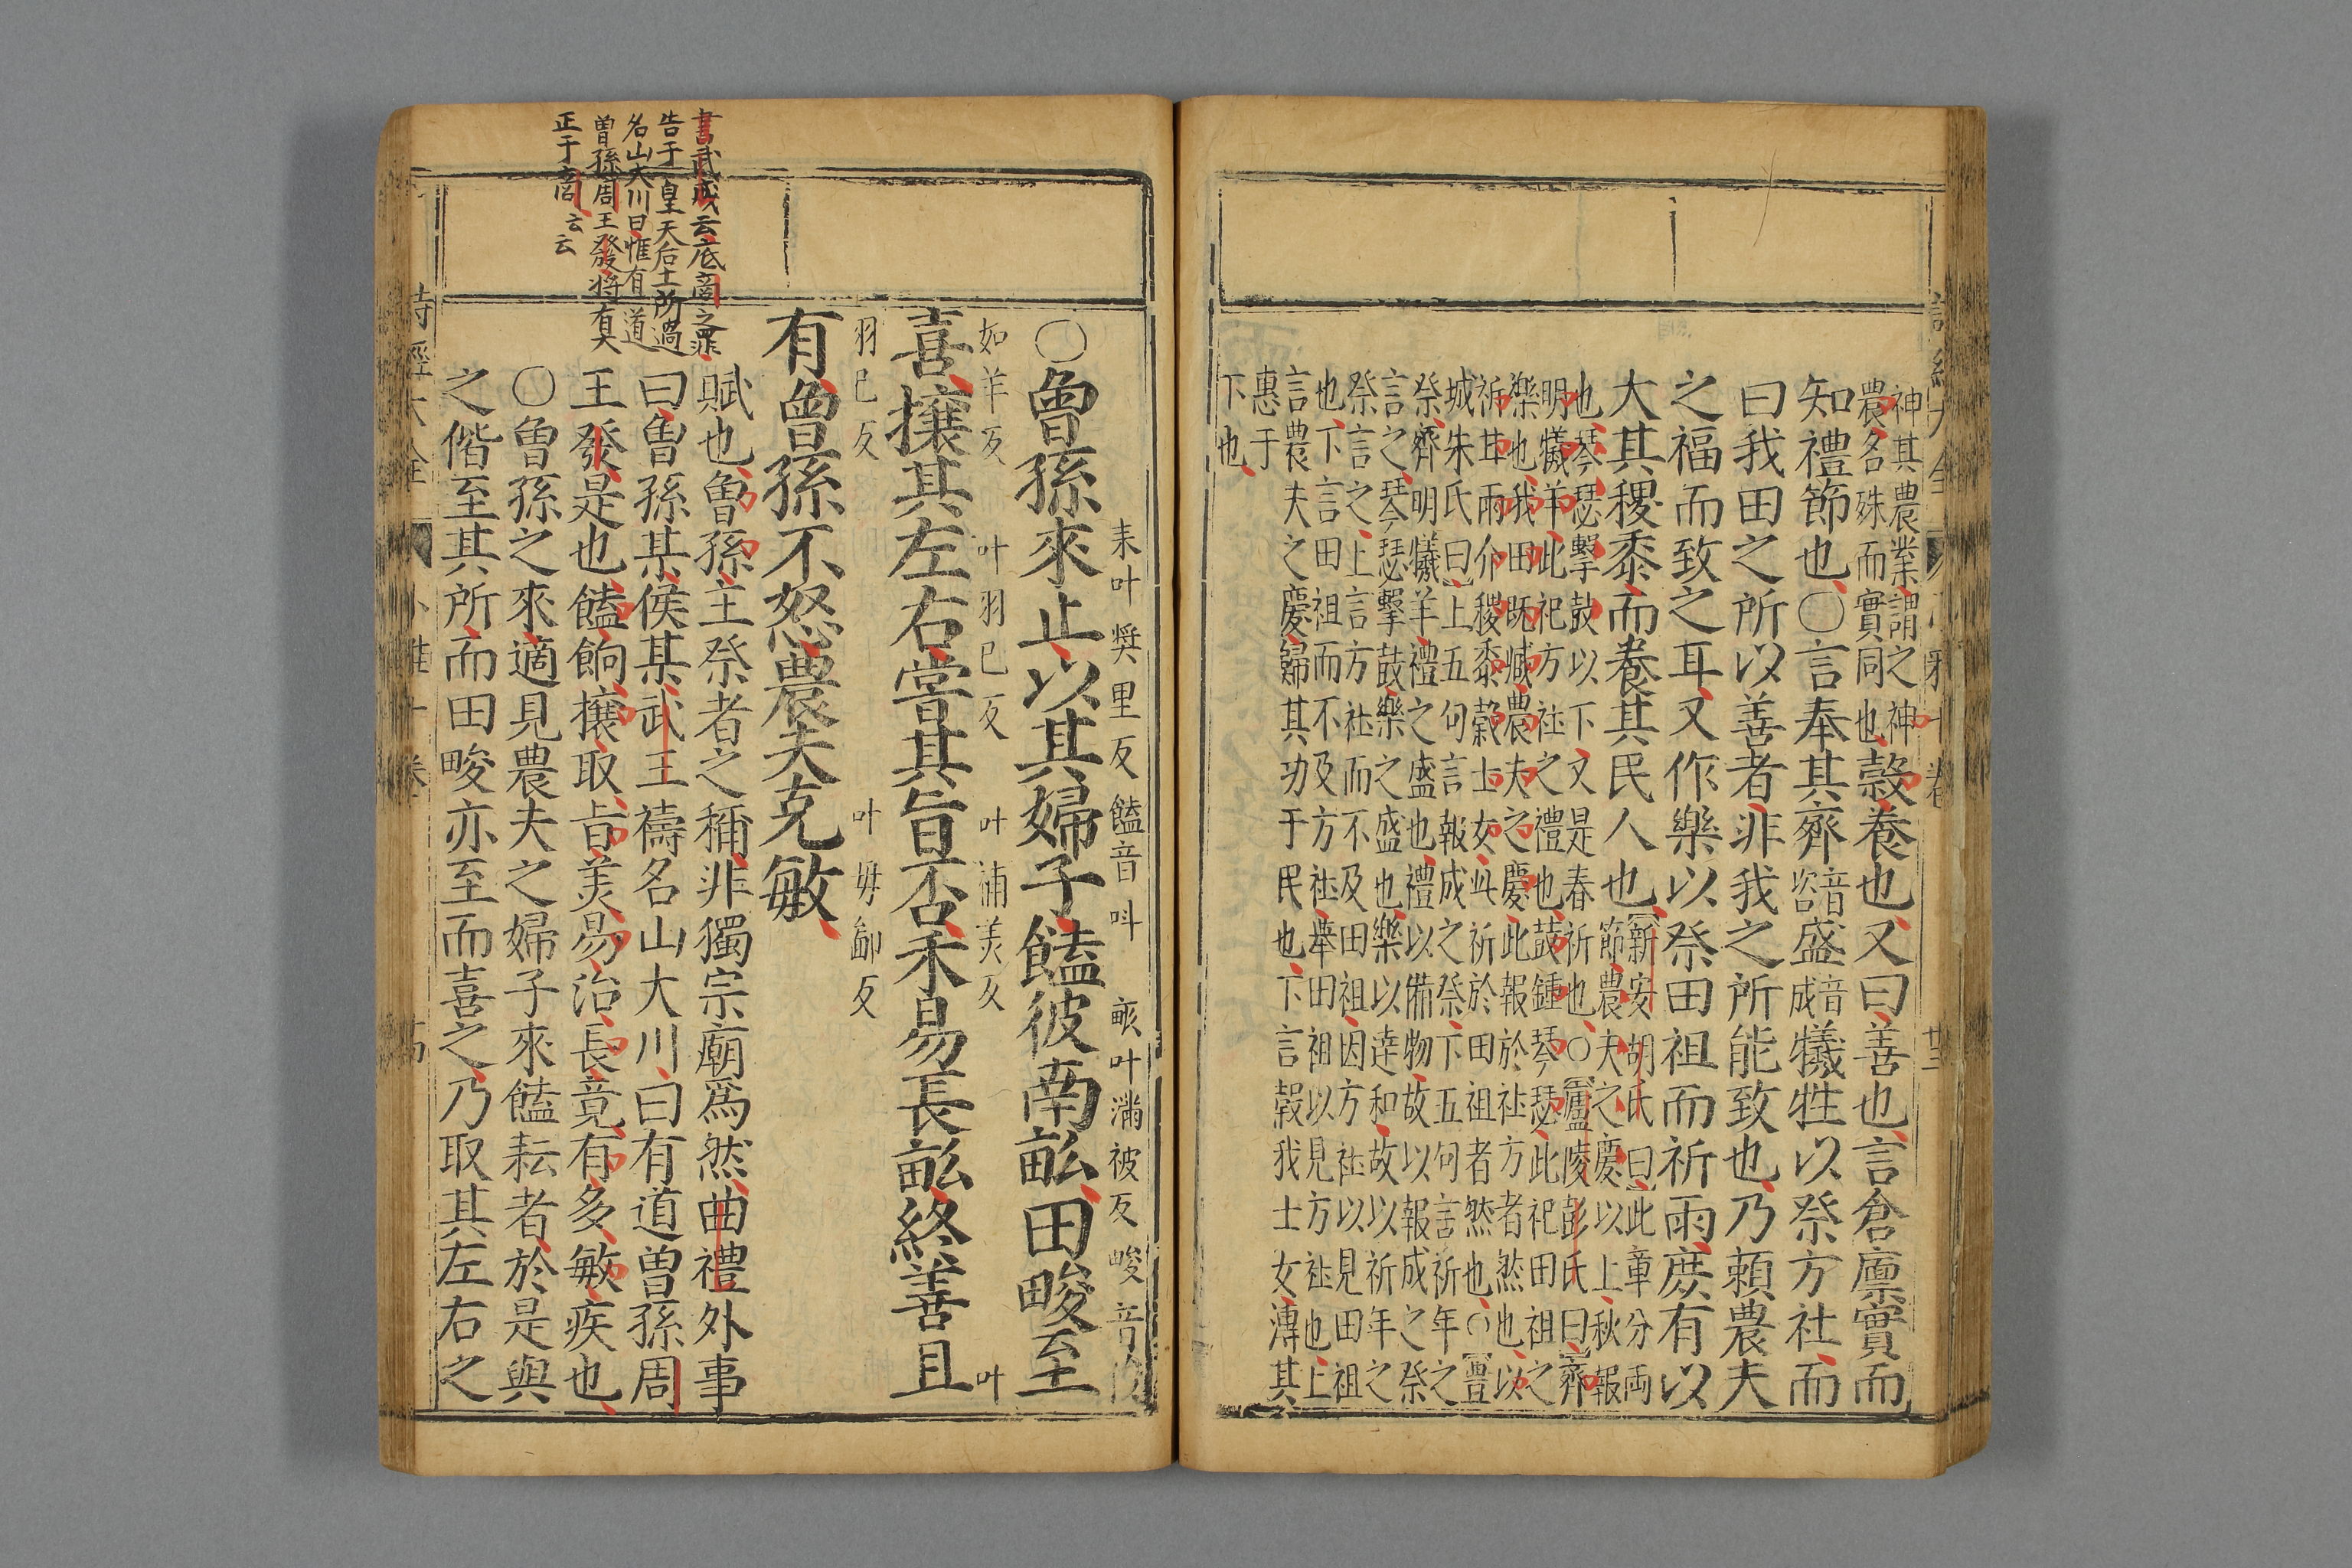 神其農業謂之神
農名殊而實同也
穀養也又曰善也言倉廩實而
知禮節也○言奉其齊
音咨
盛
音成
犧牲以祭方社而
曰我田之所以善者非我之所能致也乃賴農夫
之福而致之耳又作樂以祭田祖而祈雨庶有以
大其稷黍而養其民人也
新安胡氏曰此章分両
節農夫之慶以上秋報
也琴瑟擊鼓以下又是春祈也○廬陵彭氏曰齊
明犧羊此祀方社之禮也鼓鍾琴瑟此祀田祖之
樂也我田既臧農夫之慶此報於社方者然也以
祈甘雨介稷黍穀士女此祈於田祖者然也○豐
城朱氏曰上五句言報成之祭下五句言祈年之
祭齊明犧羊禮之盛也禮以備物故以報成之祭
言之琴瑟擊鼓樂之盛也樂以達和故以祈年之
祭言之上言方社而不及田祖因方社以見田祖
也下言田祖而不及方社舉田祖以見方社也上
言農夫之慶歸其功于民也下言穀我士女溥其
惠于
下也
○曾孫來止以其婦子饁彼南畝田畯至
耒叶奨里反 饁音叫 畝叶滿被反 畯音俊
喜攘其左右嘗其旨否禾易長畝終善且
如羊反 叶羽已反 叶補美反 叶
有曾孫不怒農夫克敏
羽已反 叶毋鄙反
賦也曾孫主祭者之稱非獨宗廟爲然曲禮外事
曰曾孫某侯某武王禱名山大川曰有道曾孫周
王發是也饁餉攘取旨美易治長竟有多敏疾也
○曾孫之來適見農夫之婦子來饁耘者於是與
之偕至其所而田畯亦至而喜之乃取其左右之
書武成云底商之罪
告于皇天后土所過
名山大川曰惟有道
曾孫周王發將有大
正于商云云